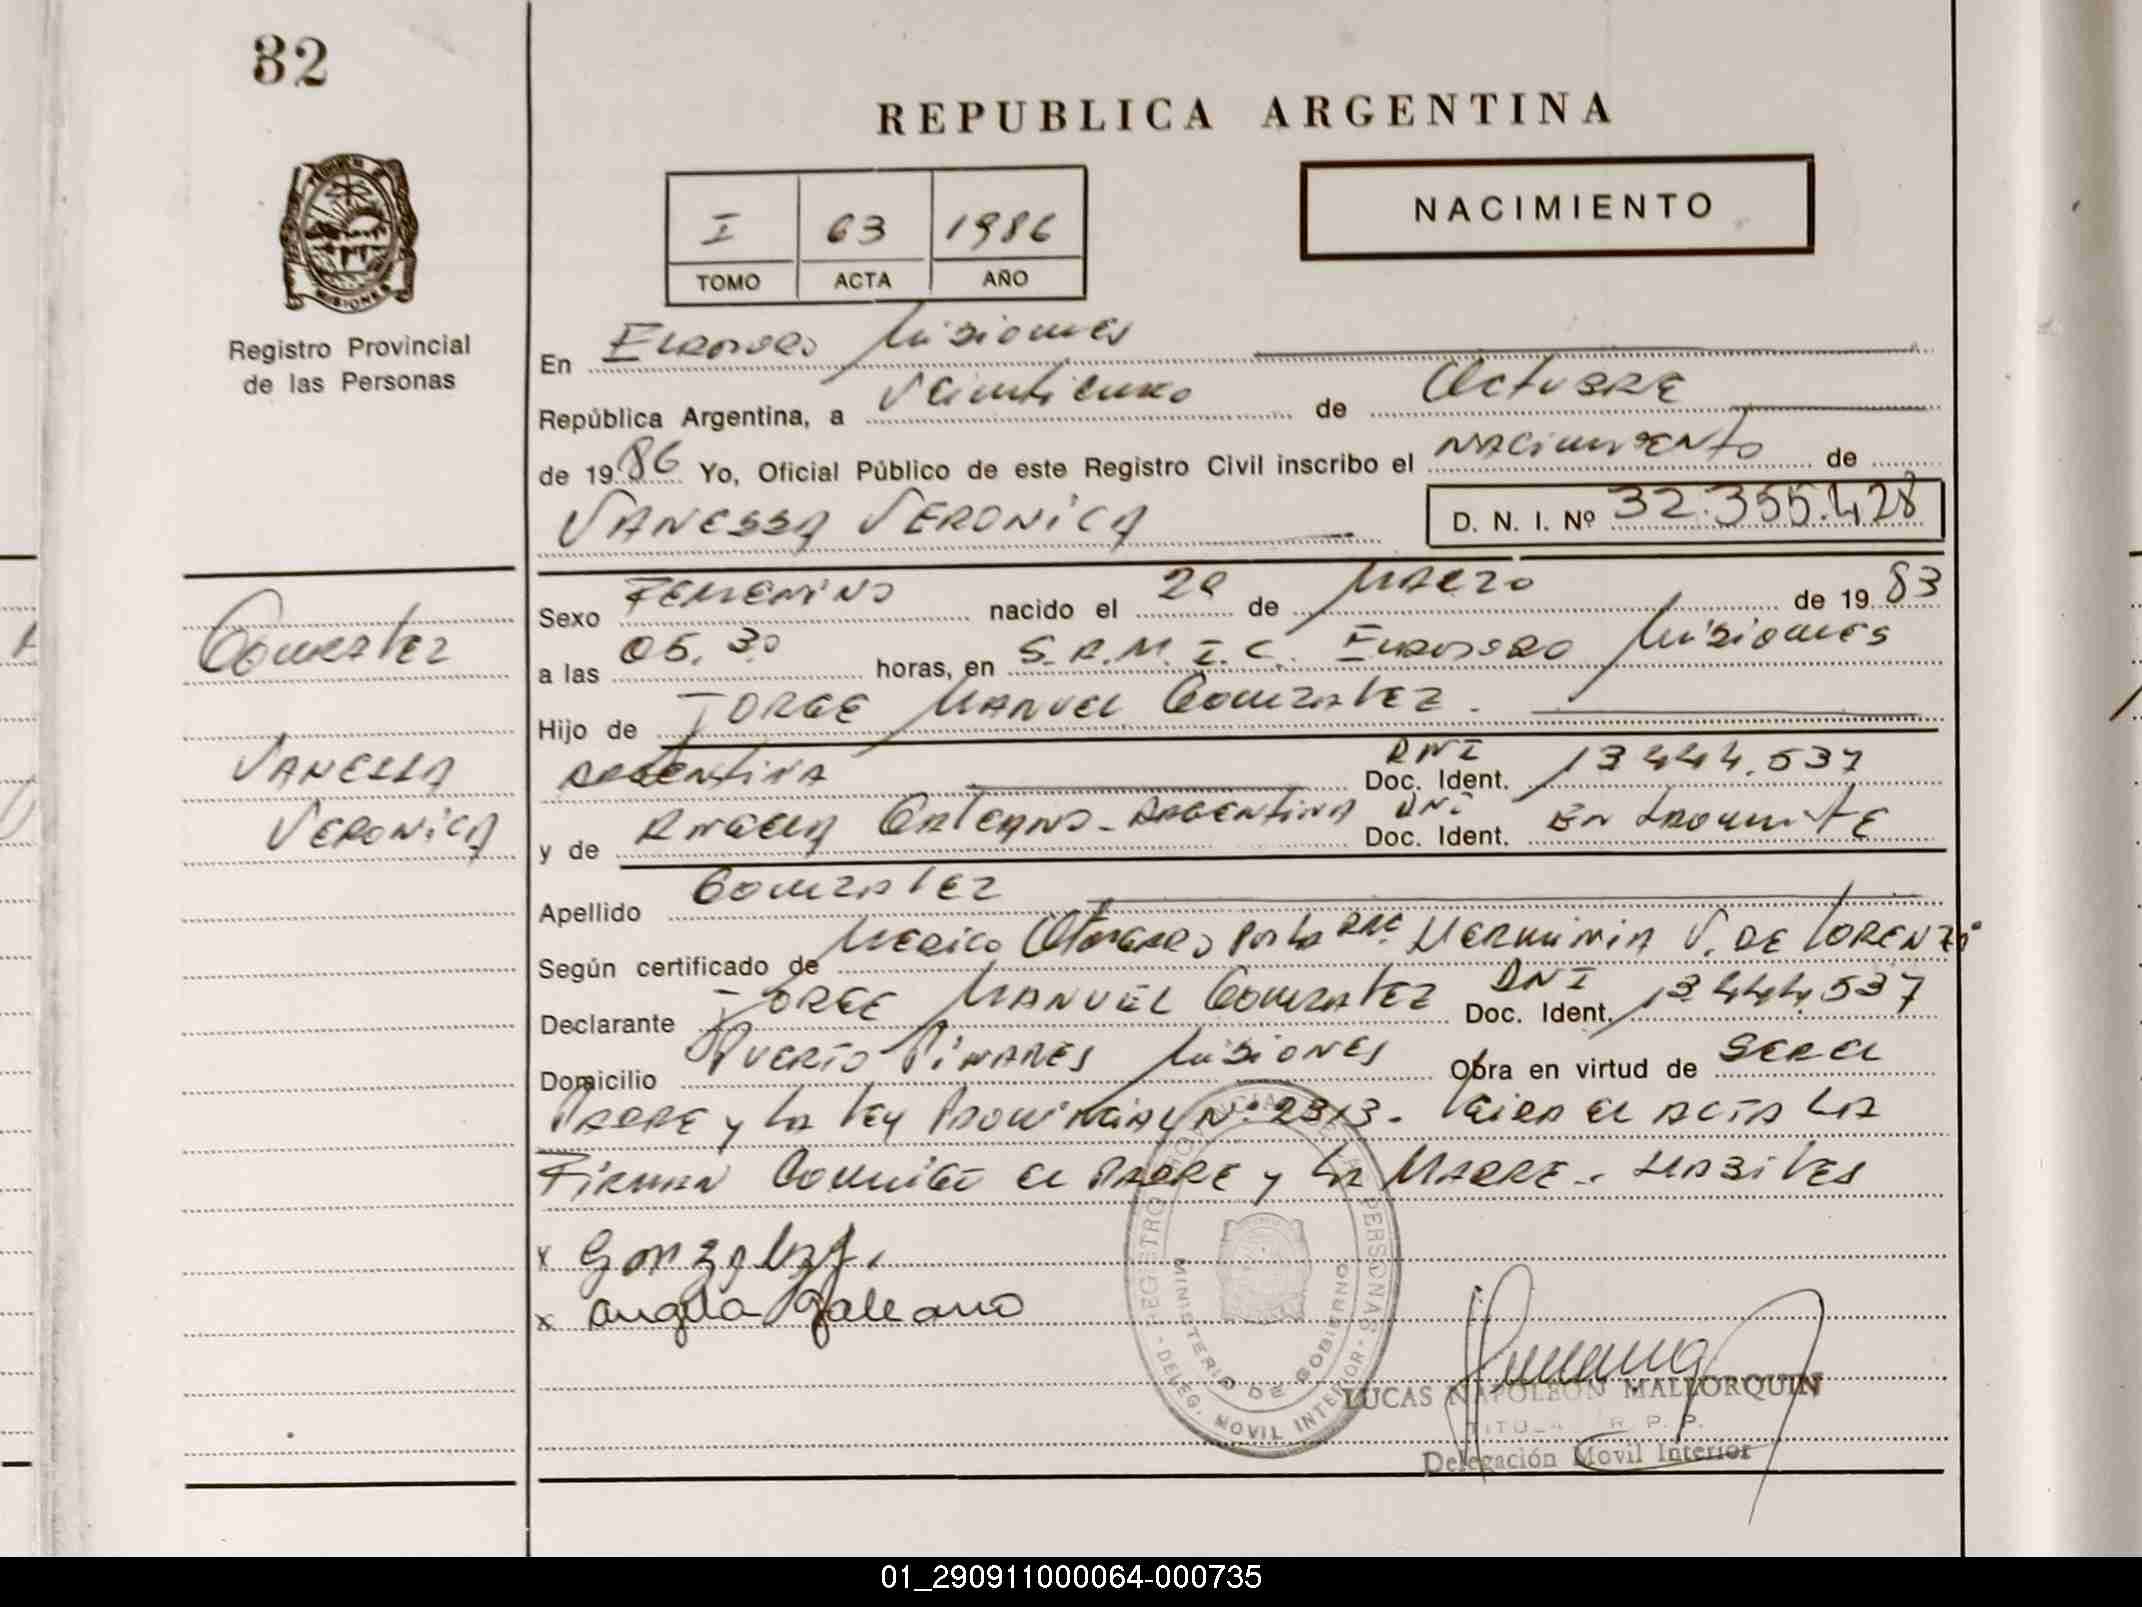 82
REPUBLICA ARGENTINA
NACIMIENTO
I 63 1986
TOMO ACTA AÑO
MISIONES
Registro Provincial
de las Personas
En Eldorado Misiones
República Argentina, a Veinticinco de Octubre
de 1986 Yo, Oficial Público de este Registro Civil inscribo el nacimiento de
VANESSA VERONICA D. N. I. Nº 32.355.428
Gonzalez
VANESSA
VERONICA
Sexo FEMENINO nacido el 28 de Marzo de 1983
a las 05.30 horas, en S.A.M.I.C. Eldorado Misiones
Hijo de JORGE MANUEL Gonzalez.
Argentina DNI Doc. Ident. 13.444.537
y de Angela Galeano - Argentina DNI Doc. Ident. En tramite
Apellido Gonzalez
Según certificado de Medico Otorgado por la Herminia V. DE LORENZI
Declarante JORGE MANUEL Gonzalez DNI Doc. Ident. 13.444.537
Domicilio PUERTO PINARES Misiones Obra en virtud de SER EL
PADRE y la Ley Provincial Nº 2313. Leida el ACTA LA
Firman Conmigo el PADRE y LA MADRE.- HABILES
x Gonzalez J.
x Angela Galeano
REGISTRO PROVINCIAL DE LAS PERSONAS
MINISTERIO DE GOBIERNO
DELEG. MOVIL INTERIOR
LUCAS NAPOLEON MALLORQUIN
TITULAR R. P. P.
Delegación Movil Interior
01_290911000064-000735